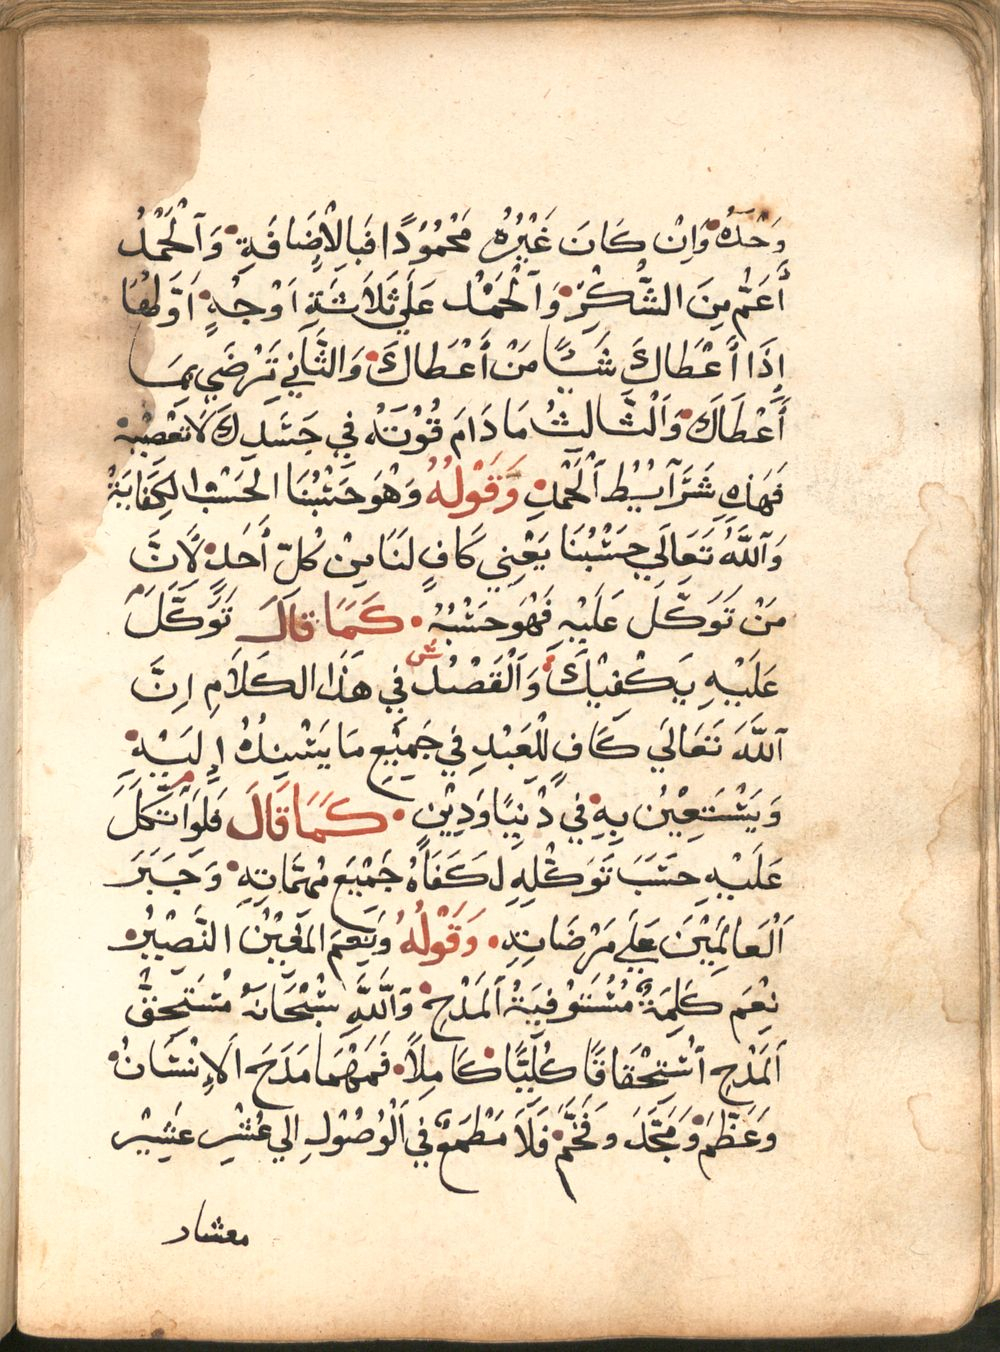 وَحْدَهُ وَاِنْ كَانَ غَيْرُهُ مَحْمُوْدًا فَبِالْاِضَافَةِ وَالْحَمْدُ
أَعَمُّ مِنَ الشُّكْرِ وَالْحَمْدُ عَلَي ثَلَاثَةِ اَوْجُهٍ اَوَّلُهَا
إِذَا أَعْطَاكَ شَيْـًٔا مَنْ أَعْطَاكَ وَالثَّانِي تَرْضَي بِمَا
أَعْطَاكَ وَالْثَّالِثُ مَا دَامَ قُوْتَهُ فِي جَسَدِكَ لَا تَعْصِيْهِ
فَهَذِهِ شَرَآئِيْطُ الْحَمْدِ وَقَوْلُهُ وَهُوَ حَسْبُنَا الحَسْبُ الكِفَايَةُ
وَاللَّهُ تَعَالَي حَسْبُنَا يَعْنِي كَافٍ لَنَا مِنْ كُلِّ أَحَدٍ لَاَنَّ
مَنْ تَوَكَّلَ عَلَيْهِ فَهُوَ حَسْبُهُ كَمَا قَالَ تَوَكَّلْ م
عَلَيْهِ يَكْفِيْكَ ش وَالْقَصْدُ فِي هَذَا الكَلَامِ اِنَّ
اللَّهَ تَعَالَي كَافٍ لِلْعَبْدِ فِي جَمِيْعِ مَا يَسْنِدُهُ اِلَيْهِ
وَيَسْتَعِيْنُ بِهِ فِي دُنْيَا وَدِيْنٍ كَمَا قَالَ م فَلَوَ اتَّكَلَ
عَلَيْهِ حَسَبَ تَوَكُّلِهِ لَكَفَاهُ جَمْيْعَ مُهِمَّاتِهِ وَجَبَرَ
اَلْعَالَمِيْنَ عَلَي مَرْضَاتِهِ وَقَوْلُهُ وَنِعْمَ المُعِيْنُ النَّصِيْرُ
نِعْمَ كَلِمَةٌ مُسْتَوْفِيَةُ اَلمَدْحِ وَاللَّهُ سُبْحَانَهُ مُسْتَحِقُّ
اَلمَدْحِ اسْتِحْقَاقًا كُلِّيًّا كَامِلًا فَمَهْمَا مَدَحَ الاِنْسَانُ
وَعَظَّمَ وَمَجَّدَ وَفَخَّمَ فَلَا مَطْمَعٌ فِي الْوُصُوْلِ اِلَي عُشْرِ عَشِيْرِ
معشار